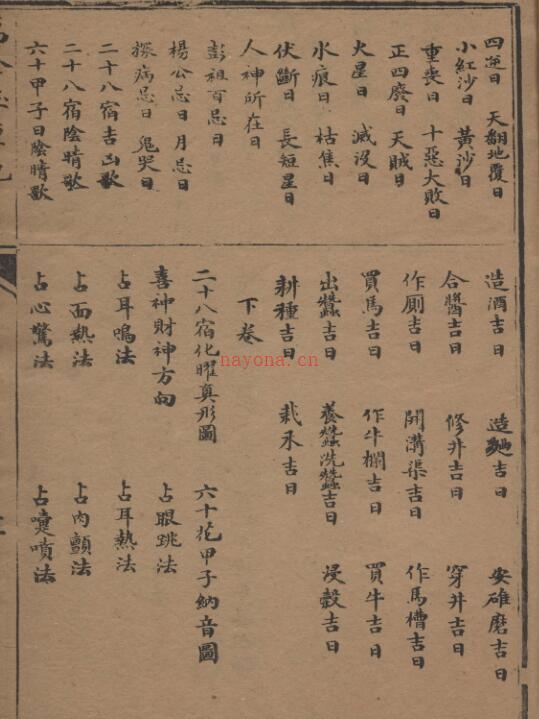 四逆日 天翻地覆日
小紅沙日 黃沙日
重喪日 十惡大敗日
正四廢日 天賊日
火星日 滅没日
水痕日 枯焦日
伏斷日 長短星日
人神所在日
彭祖百忌日
楊公忌日 月忌日
探病忌日 鬼哭日
二十八宿吉凶歌
二十八宿陰晴歌
六十甲子日陰晴歌
造酒吉日 造麯吉日 安碓磨吉日
合醬吉日 修井吉日 穿井吉日
作厠吉日 開溝渠吉日 作馬槽吉日
買馬吉日 作牛欄吉日 買牛吉日
出蠶吉日 養蠶洗蠶吉日 浸穀吉日
耕種吉日 栽禾吉日
下卷
二十八宿化曜真形圖 六十花甲子納音圖
喜神財神方向 占眼跳法
占耳鳴法 占耳熱法
占面熱法 占肉顫法
占心驚法 占嚏噴法
nayona.cn